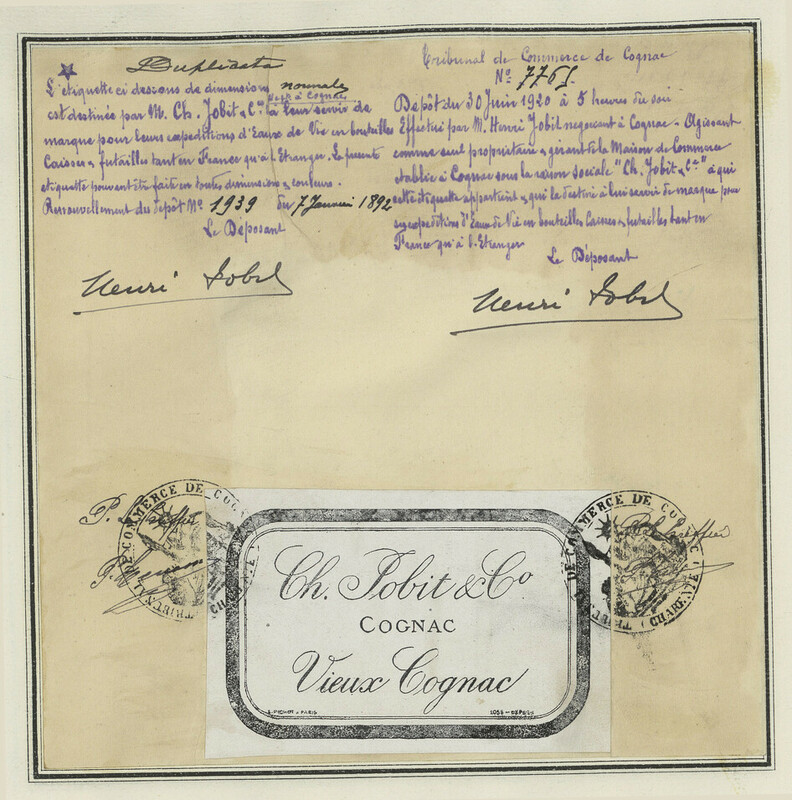 Duplicata
L'étiquette ci dessous de dimension normale
Négt à Cognac
est destinée par M. Ch. Jobit & Cie à leur servir de
marque pour leurs expéditions d'Eaux de Vie en bouteilles
Caisses & futailles tant en France qu'à l'Etranger. La présente
étiquette pouvant être faite en toutes dimensions & couleurs.
Renouvellement du dépôt No 1939 du 7 Janvier 1892
Le Déposant
Henri Jobit
Tribunal de Commerce de Cognac
No
Dépôt du 30 Juin 1920 à 5 heures du soir
Effectué par M. Henri Jobit négociant à Cognac - Agissant
comme seul propriétaire & gérant de la Maison de Commerce
établie à Cognac sous la raison sociale "Ch. Jobit & Cie" à qui
cette étiquette appartient & qui la destine à lui servir de marque pour
ses expéditions d'Eaux de Vie en bouteilles Caisses & futailles tant en
France qu'à l'Etranger
Le Déposant
Henri Jobit
DE COMMERCE DE COG
Ch. Jobit & Co
COGNAC
Vieux Cognac
DE COMMERCE DE CO
CHARENTE